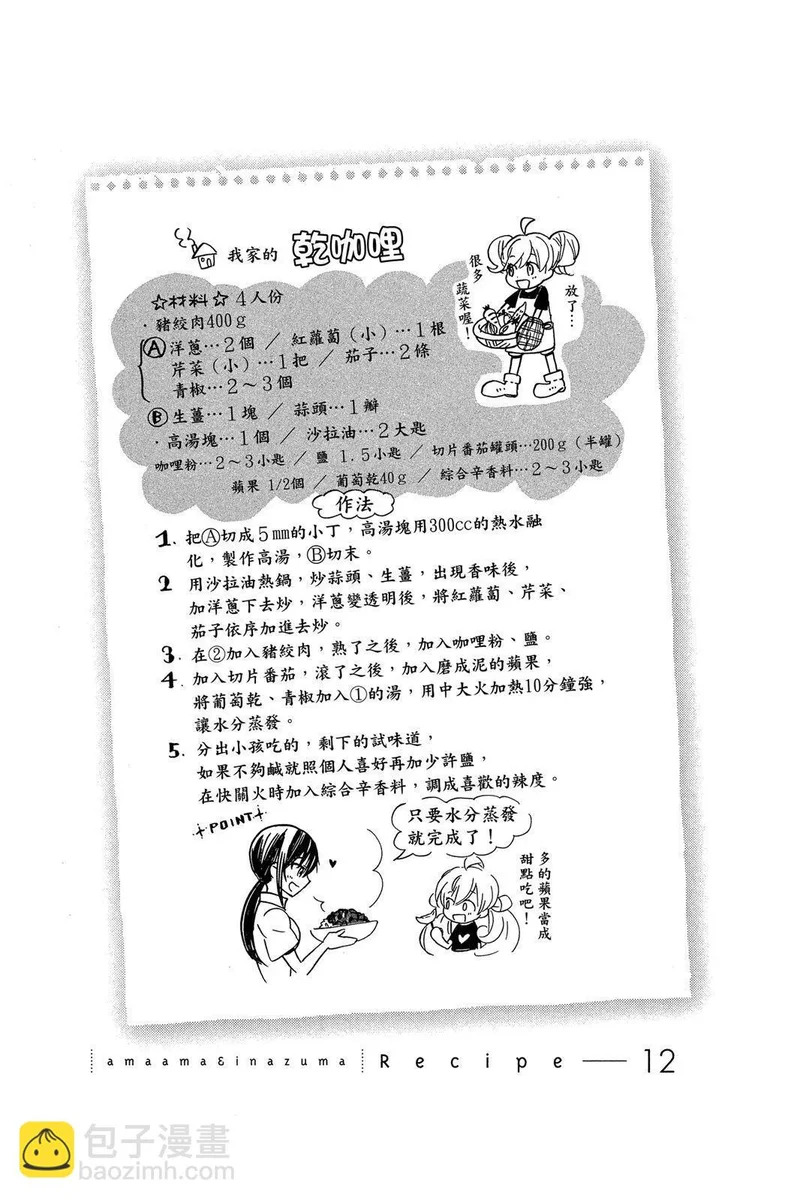 我家的 乾咖哩
很多蔬菜喔！
放了…
☆材料☆ 4人份
・豬絞肉400g
Ⓐ洋蔥…2個 ／ 紅蘿蔔（小）…1根
芹菜（小）…1把 ／ 茄子…2條
青椒…2～3個
Ⓑ生薑…1塊 ／ 蒜頭…1瓣
・高湯塊…1個 ／ 沙拉油…2大匙
咖哩粉…2～3小匙 ／ 鹽 1.5小匙 ／ 切片番茄罐頭…200g（半罐）
蘋果 1/2個 ／ 葡萄乾40g ／ 綜合辛香料…2～3小匙
作法
1. 把Ⓐ切成5mm的小丁，高湯塊用300cc的熱水融
化，製作高湯，Ⓑ切末。
2 用沙拉油熱鍋，炒蒜頭、生薑，出現香味後，
加洋蔥下去炒，洋蔥變透明後，將紅蘿蔔、芹菜、
茄子依序加進去炒。
3. 在②加入豬絞肉，熟了之後，加入咖哩粉、鹽。
4. 加入切片番茄，滾了之後，加入磨成泥的蘋果，
將葡萄乾、青椒加入①的湯，用中大火加熱10分鐘強，
讓水分蒸發。
5. 分出小孩吃的，剩下的試味道，
如果不夠鹹就照個人喜好再加少許鹽，
在快關火時加入綜合辛香料，調成喜歡的辣度。
POINT
只要水分蒸發
就完成了！
多的蘋果當成
甜點吃吧！
amaama&inazuma Recipe 12
包子漫畫
baozimh.com